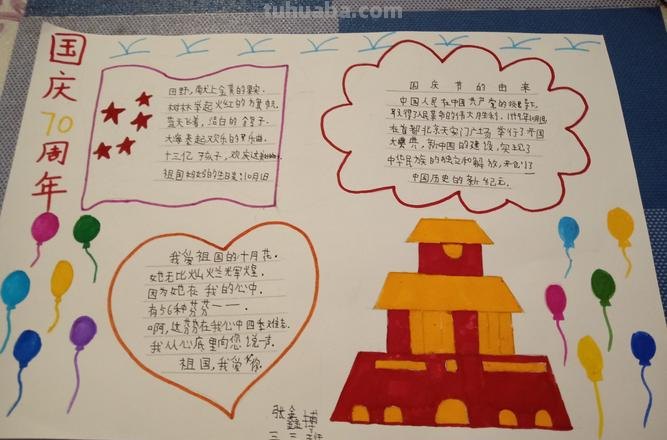 tuhuaba.com
国庆70周年
田野,献上金黄的果实.
树林举起火红的
蓝天飞着,洁白的鸽子.
大海奏起欢乐的
十三亿孩子,欢庆这
祖国妈妈的生日是:10月1日
国庆节的由来
中国人民在中国共产党的
取得了人民革命的伟大胜利.1949年10月1日
在首都北京天安门广场举行了开国
大典,新中国的建设,实现了
中华民族的独立和解放,开创了
中国历史的新纪元.
我爱祖国的十月花.
她无比灿烂辉煌.
因为她在我的心中.
有56种芬芳一一.
啊,这芬芳在我心中四季难忘.
我从心底里向您说一声.
祖国,我爱你.
张鑫博
三三班